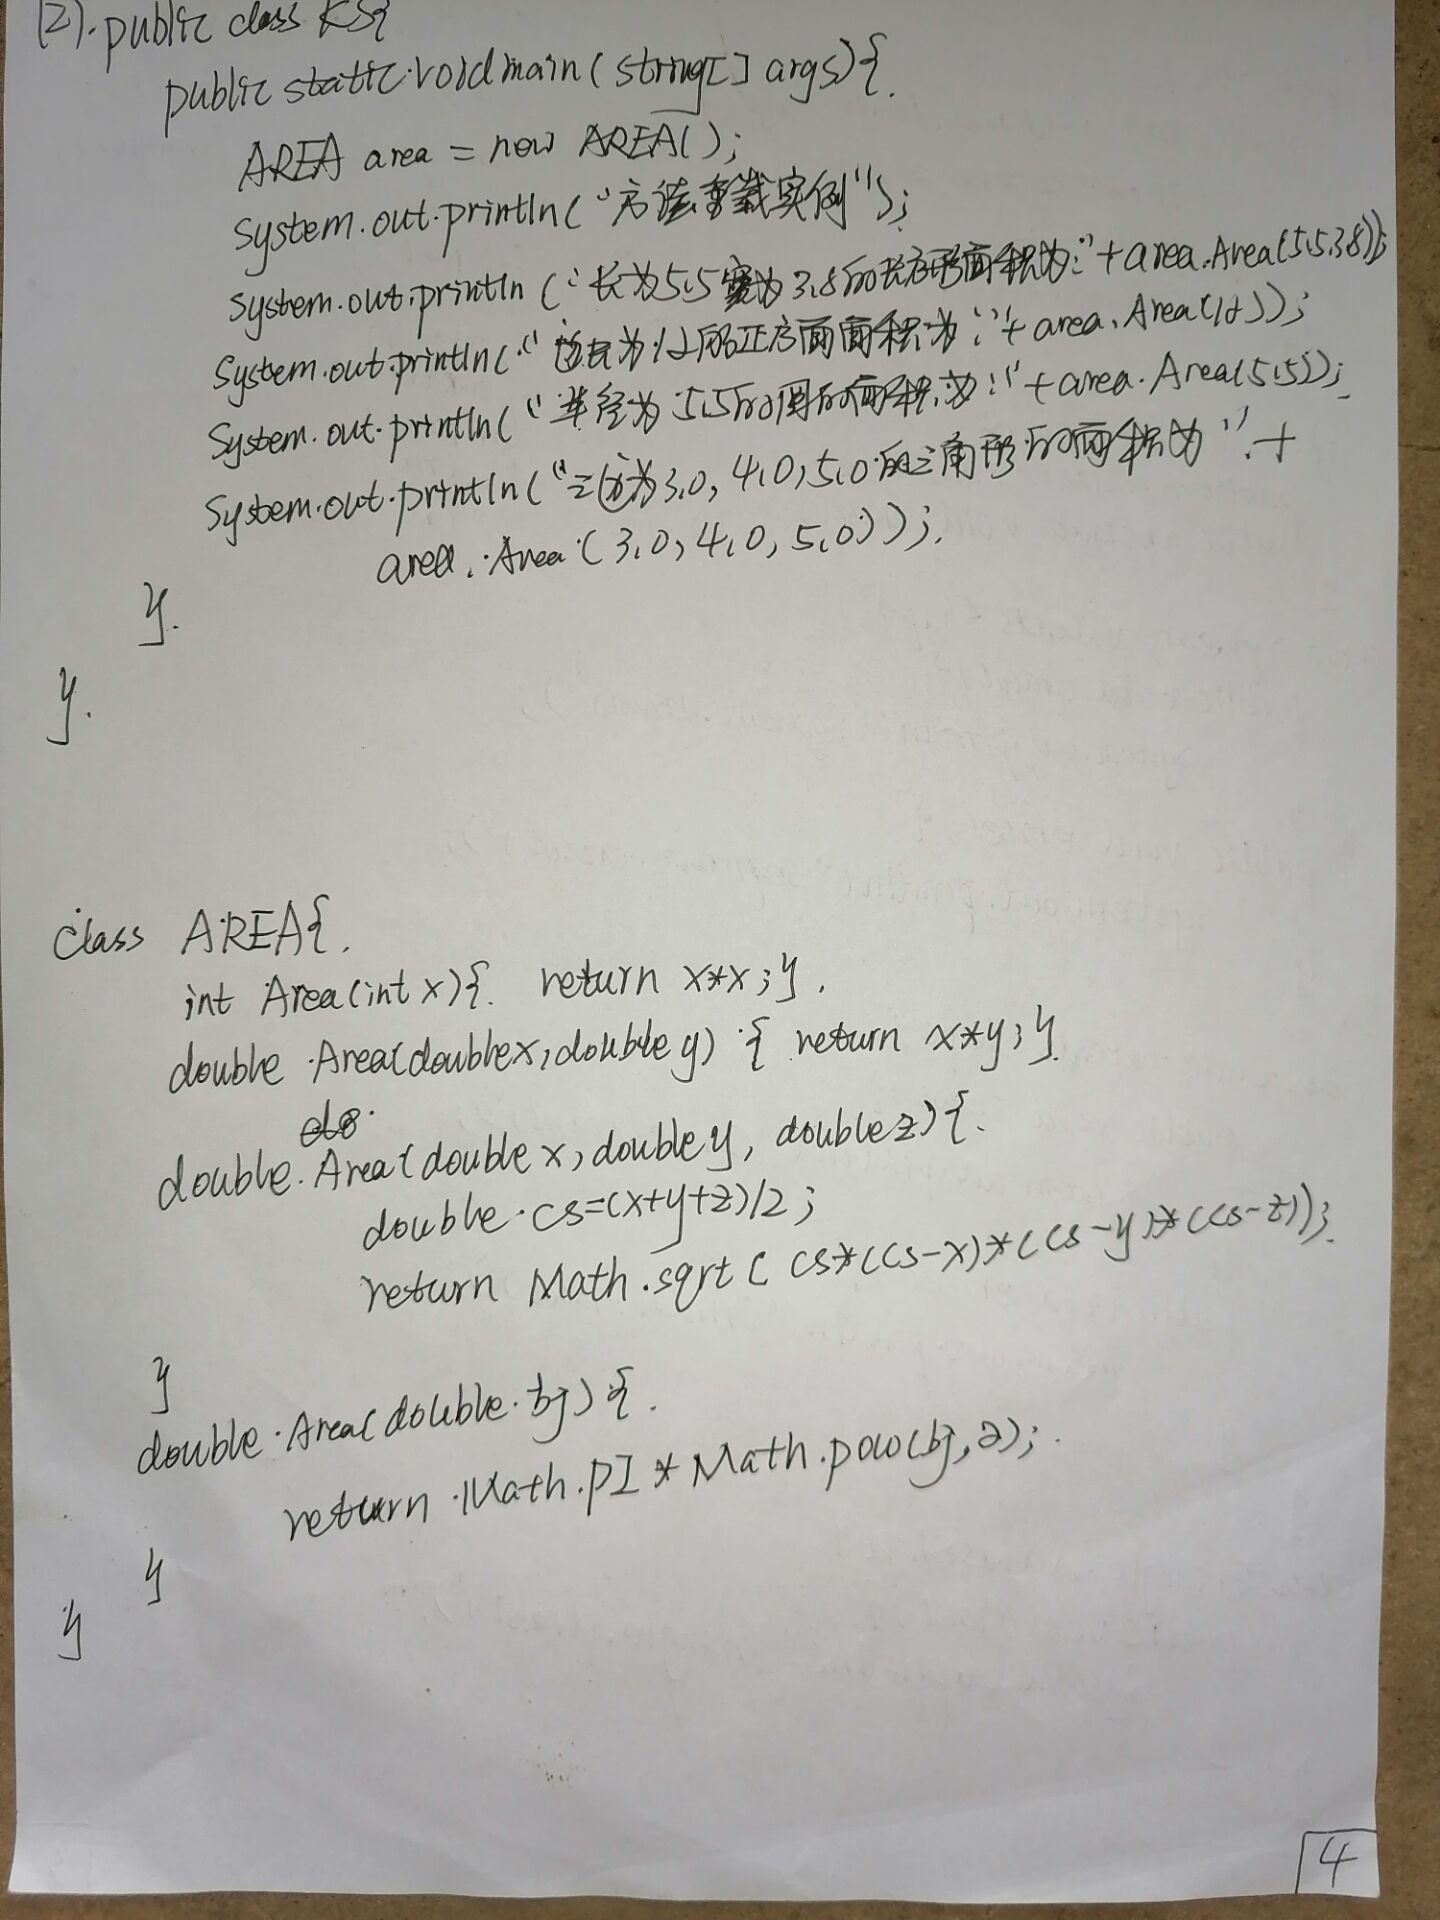 (2). public class KS{
public static void main(string[] args){.
AREA area = new AREA();
System.out.println("方法重载实例");
System.out.println("长为5.5宽为3.8的长方形面积为:"+area.Area(5.5,3.8));
System.out.println("边长为12的正方面面积为:"+area.Area(12));
System.out.println("半径为5.5的圆的面积为:"+area.Area(5.5));
System.out.println("三边为3.0,4.0,5.0的三角形的面积为"+
area.Area(3.0,4.0,5.0));.
}.
}.
class AREA{.
int Area(int x){. return x*x;}.
double Area(double x,double y){ return x*y;}
do
double Area(double x,double y, double z){.
double cs=(x+y+z)/2;
return Math.sqrt(cs*(cs-x)*(cs-y)*(cs-z));.
}
double Area(double bj){.
return Math.PI*Math.pow(bj,2);.
}
}
4